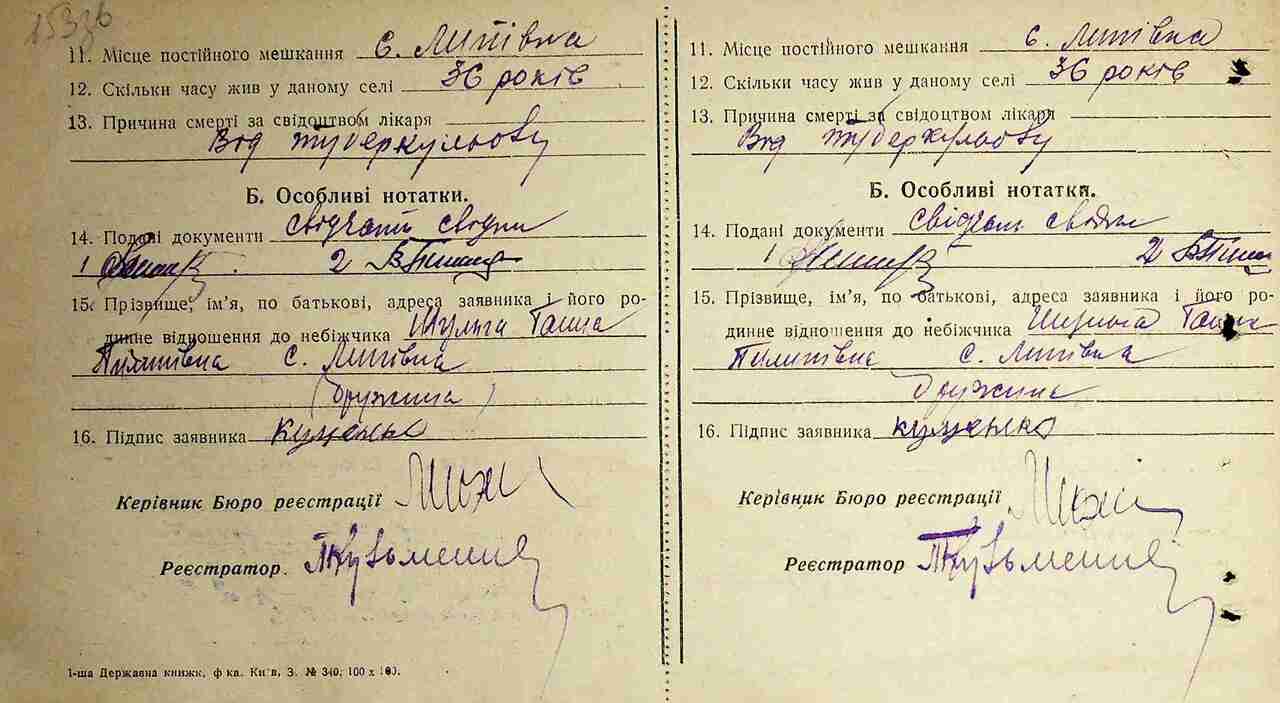 11. Місце постійного мешкання с. Липівка
12. Скільки часу жив у даному селі 36 років
13. Причина смерті за свідоцтвом лікаря
Від туберкульозу
Б. Особливі нотатки.
14. Подані документи свідчать свідки
1 2
15. Прізвище, ім'я, по батькові, адреса заявника і його ро-
динне відношення до небіжчика Шульга Ганна
Пилипівна с. Липівка
(дружина)
16. Підпис заявника
Керівник Бюро реєстрації
Реєстратор
1-ша Державна книжк. ф-ка. Київ, З. № 340; 100 х 100.
11. Місце постійного мешкання с. Липівка
12. Скільки часу жив у даному селі 36 років
13. Причина смерті за свідоцтвом лікаря
Від туберкульозу
Б. Особливі нотатки.
14. Подані документи свідчать свідки
1 2
15. Прізвище, ім'я, по батькові, адреса заявника і його ро-
динне відношення до небіжчика Шульга Ганна
Пилипівна с. Липівка
дружина
16. Підпис заявника
Керівник Бюро реєстрації
Реєстратор